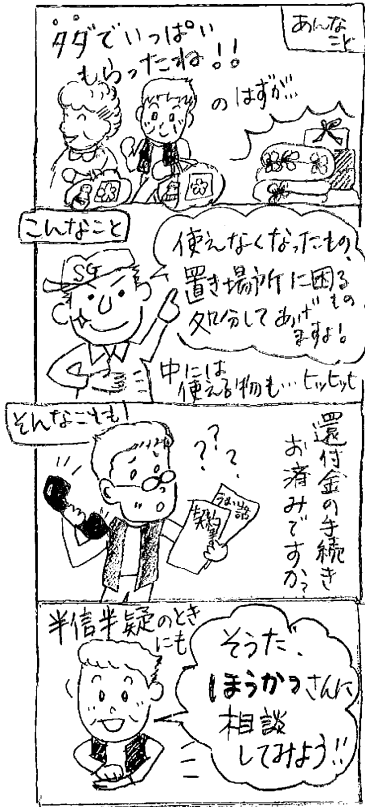 あんな
こと
タダでいっぱい
もらったね!!
のはずが…
こんなこと
SG
使えなくなったもの、
置き場所に困るもの
処分してあげ
ますよ!
中には
使える物も…ヒッヒッヒ
そんなことも!
???
うまい話
契約書
還付金の手続き
お済みですか?
半信半疑のとき
にも
そうだ、
ほうかつさんに
相談
してみよう!!